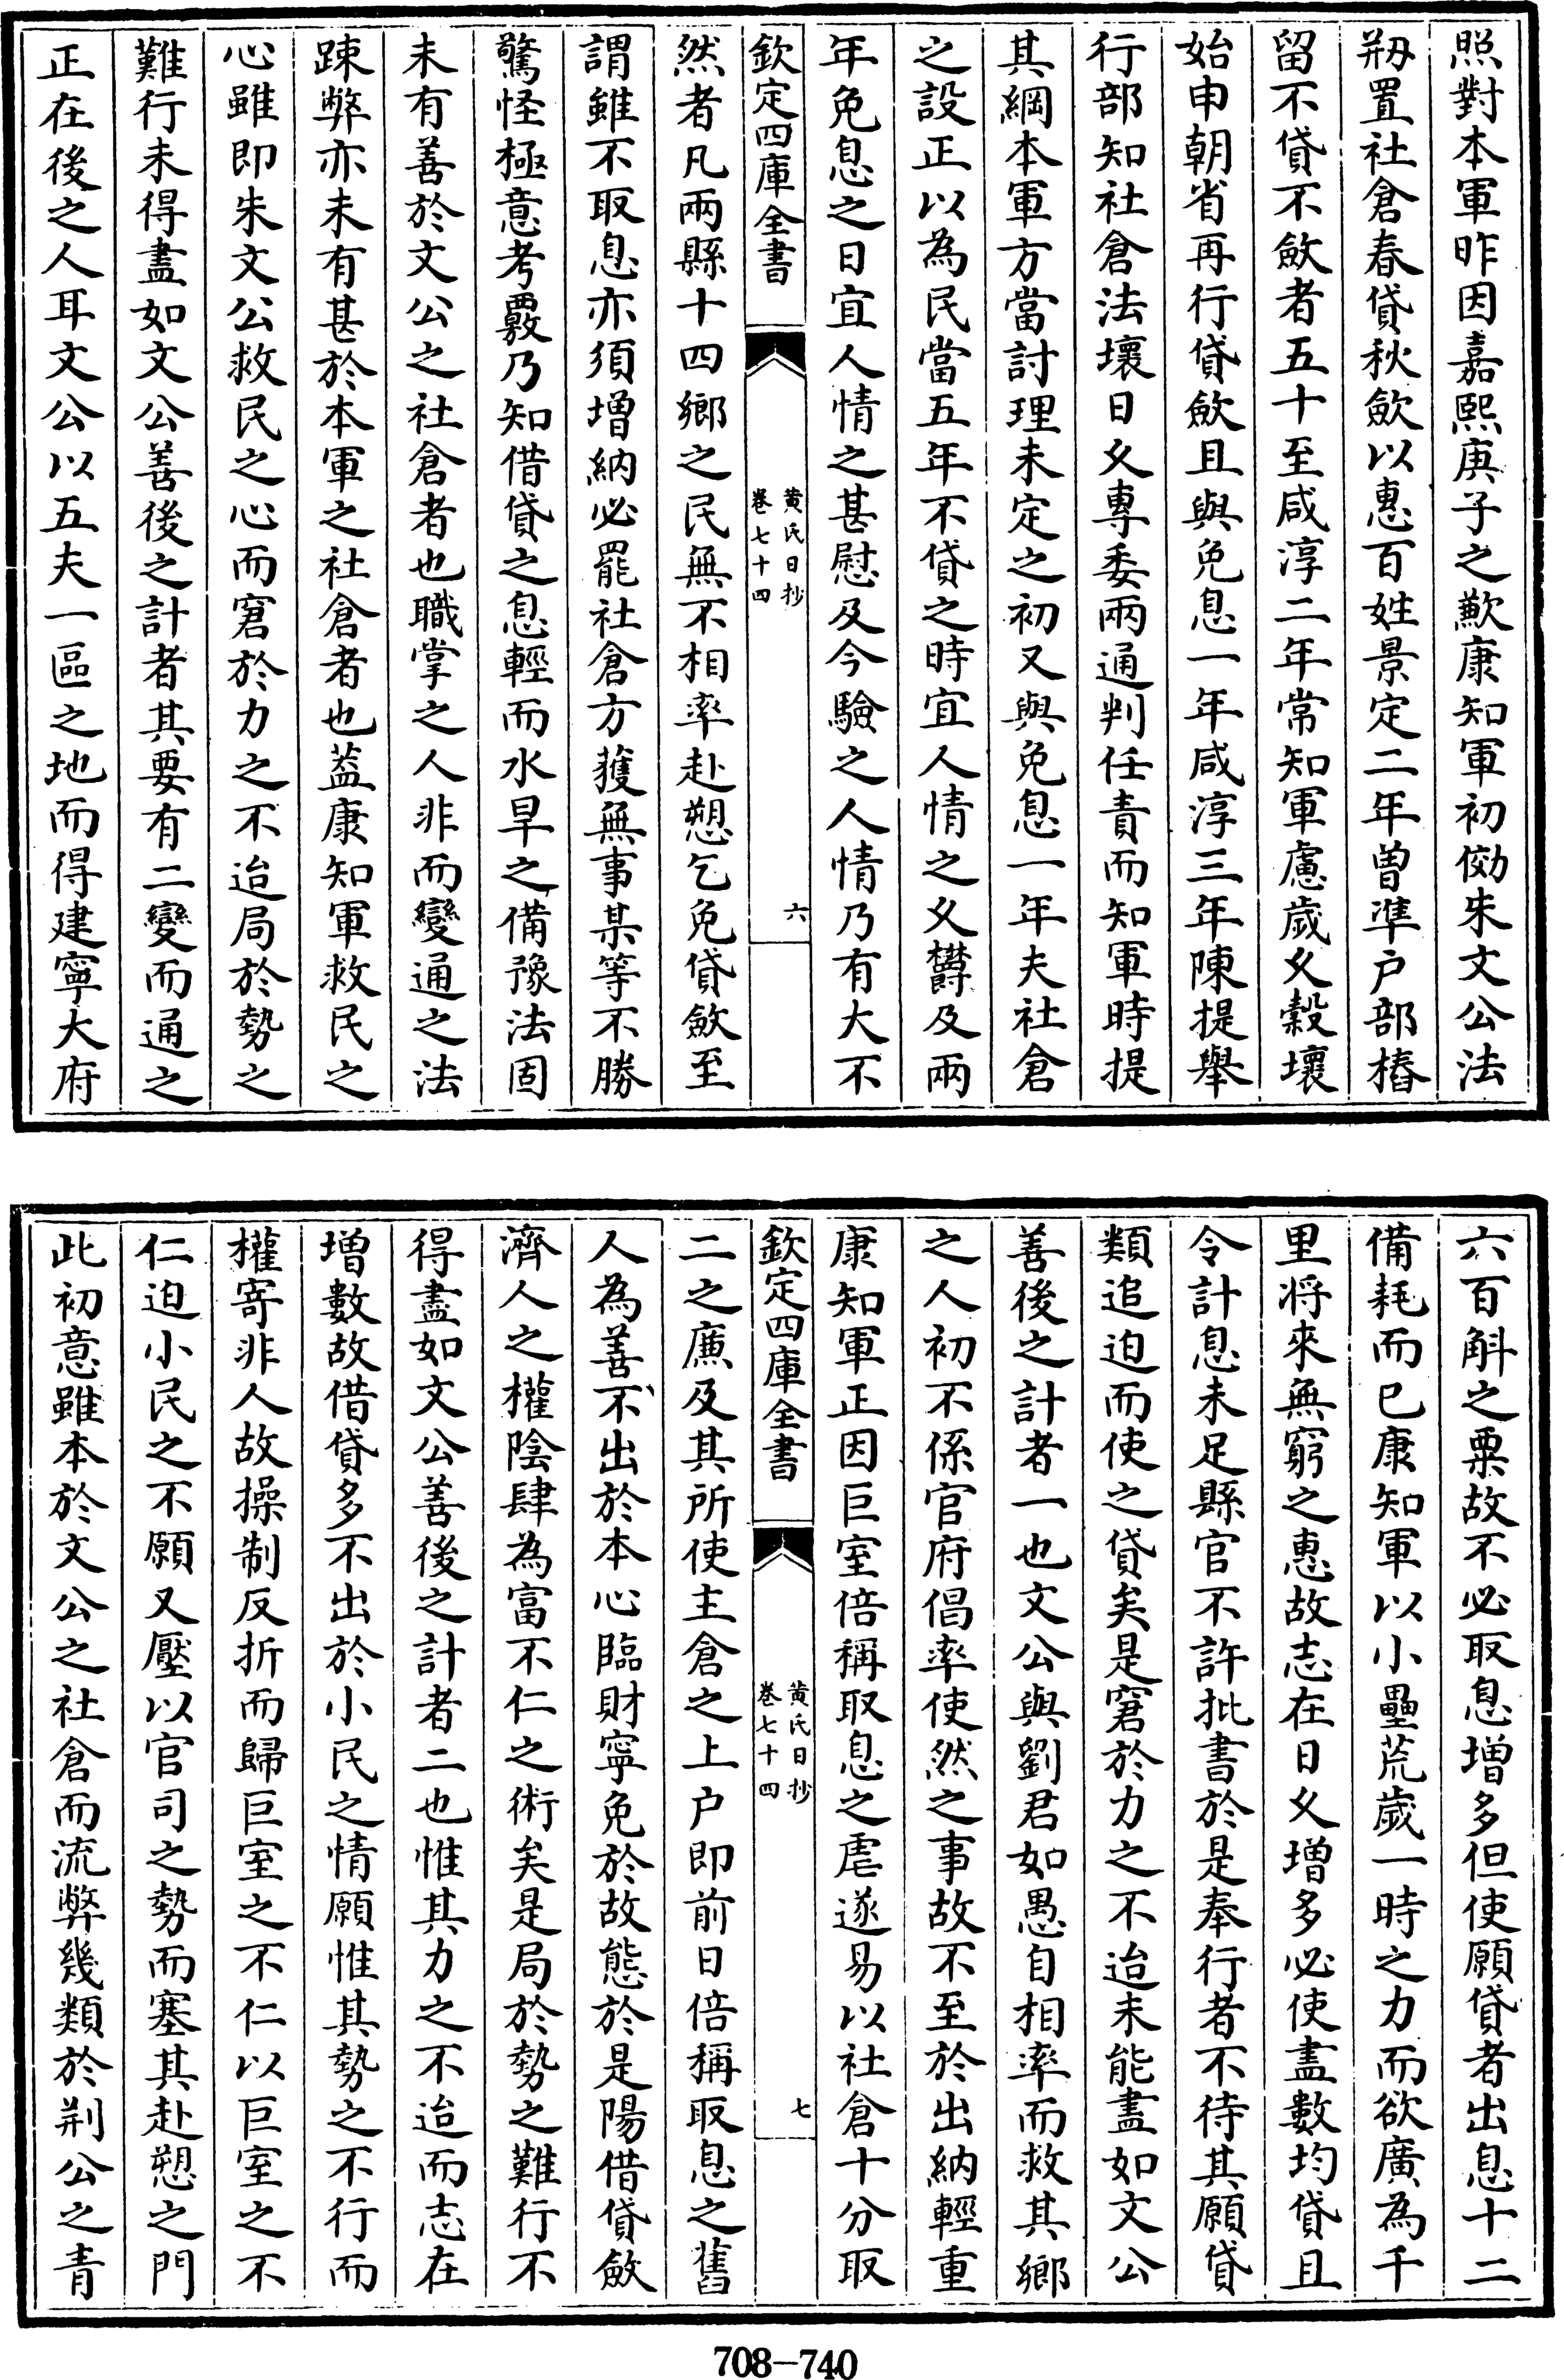 照對本軍昨因嘉熙庚子之歉康知軍初倣朱文公法
剏置社倉春貸秋歛以惠百姓景定二年曽凖户部樁
留不貸不斂者五十至咸淳二年常知軍慮歲乆穀壞
始申朝省再行貸斂且與免息一年咸淳三年陳提舉
行部知社倉法壞日乆專委兩通判任責而知軍時提
其綱本軍方當討理未定之初又與免息一年夫社倉
之設正以為民當五年不貸之時宜人情之乆欝及兩
年免息之日宜人情之甚慰及今驗之人情乃有大不
欽定四庫全書
黄氏日抄
卷七十四
六
然者凡兩縣十四鄉之民無不相率赴愬乞免貸斂至
謂雖不取息亦須増納必罷社倉方獲無事某等不勝
驚怪極意考覈乃知借貸之息輕而水旱之備豫法固
未有善於文公之社倉者也職掌之人非而變通之法
踈弊亦未有甚於本軍之社倉者也葢康知軍救民之
心雖即朱文公救民之心而窘於力之不迨局於勢之
難行未得盡如文公善後之計者其要有二變而通之
正在後之人耳文公以五夫一區之地而得建寧大府
六百斛之粟故不必取息増多但使願貸者出息十二
備耗而已康知軍以小壘荒歲一時之力而欲廣為千
里將來無窮之惠故志在日乆増多必使盡數均貸且
令計息未足縣官不許批書於是奉行者不待其願貸
類追迫而使之貸矣是窘於力之不迨未能盡如文公
善後之計者一也文公與劉君如愚自相率而救其鄉
之人初不係官府倡率使然之事故不至於出納輕重
康知軍正因巨室倍稱取息之虐遂易以社倉十分取
欽定四庫全書
黄氏日抄
卷七十四
七
二之廉及其所使主倉之上户即前日倍稱取息之舊
人為善不出於本心臨財寧免於故態於是陽借貸斂
濟人之權陰肆為富不仁之術矣是局於勢之難行不
得盡如文公善後之計者二也惟其力之不迨而志在
増數故借貸多不出於小民之情願惟其勢之不行而
權寄非人故操制反折而歸巨室之不仁以巨室之不
仁迫小民之不願又壓以官司之勢而塞其赴愬之門
此初意雖本於文公之社倉而流弊幾類於荆公之青
708—740